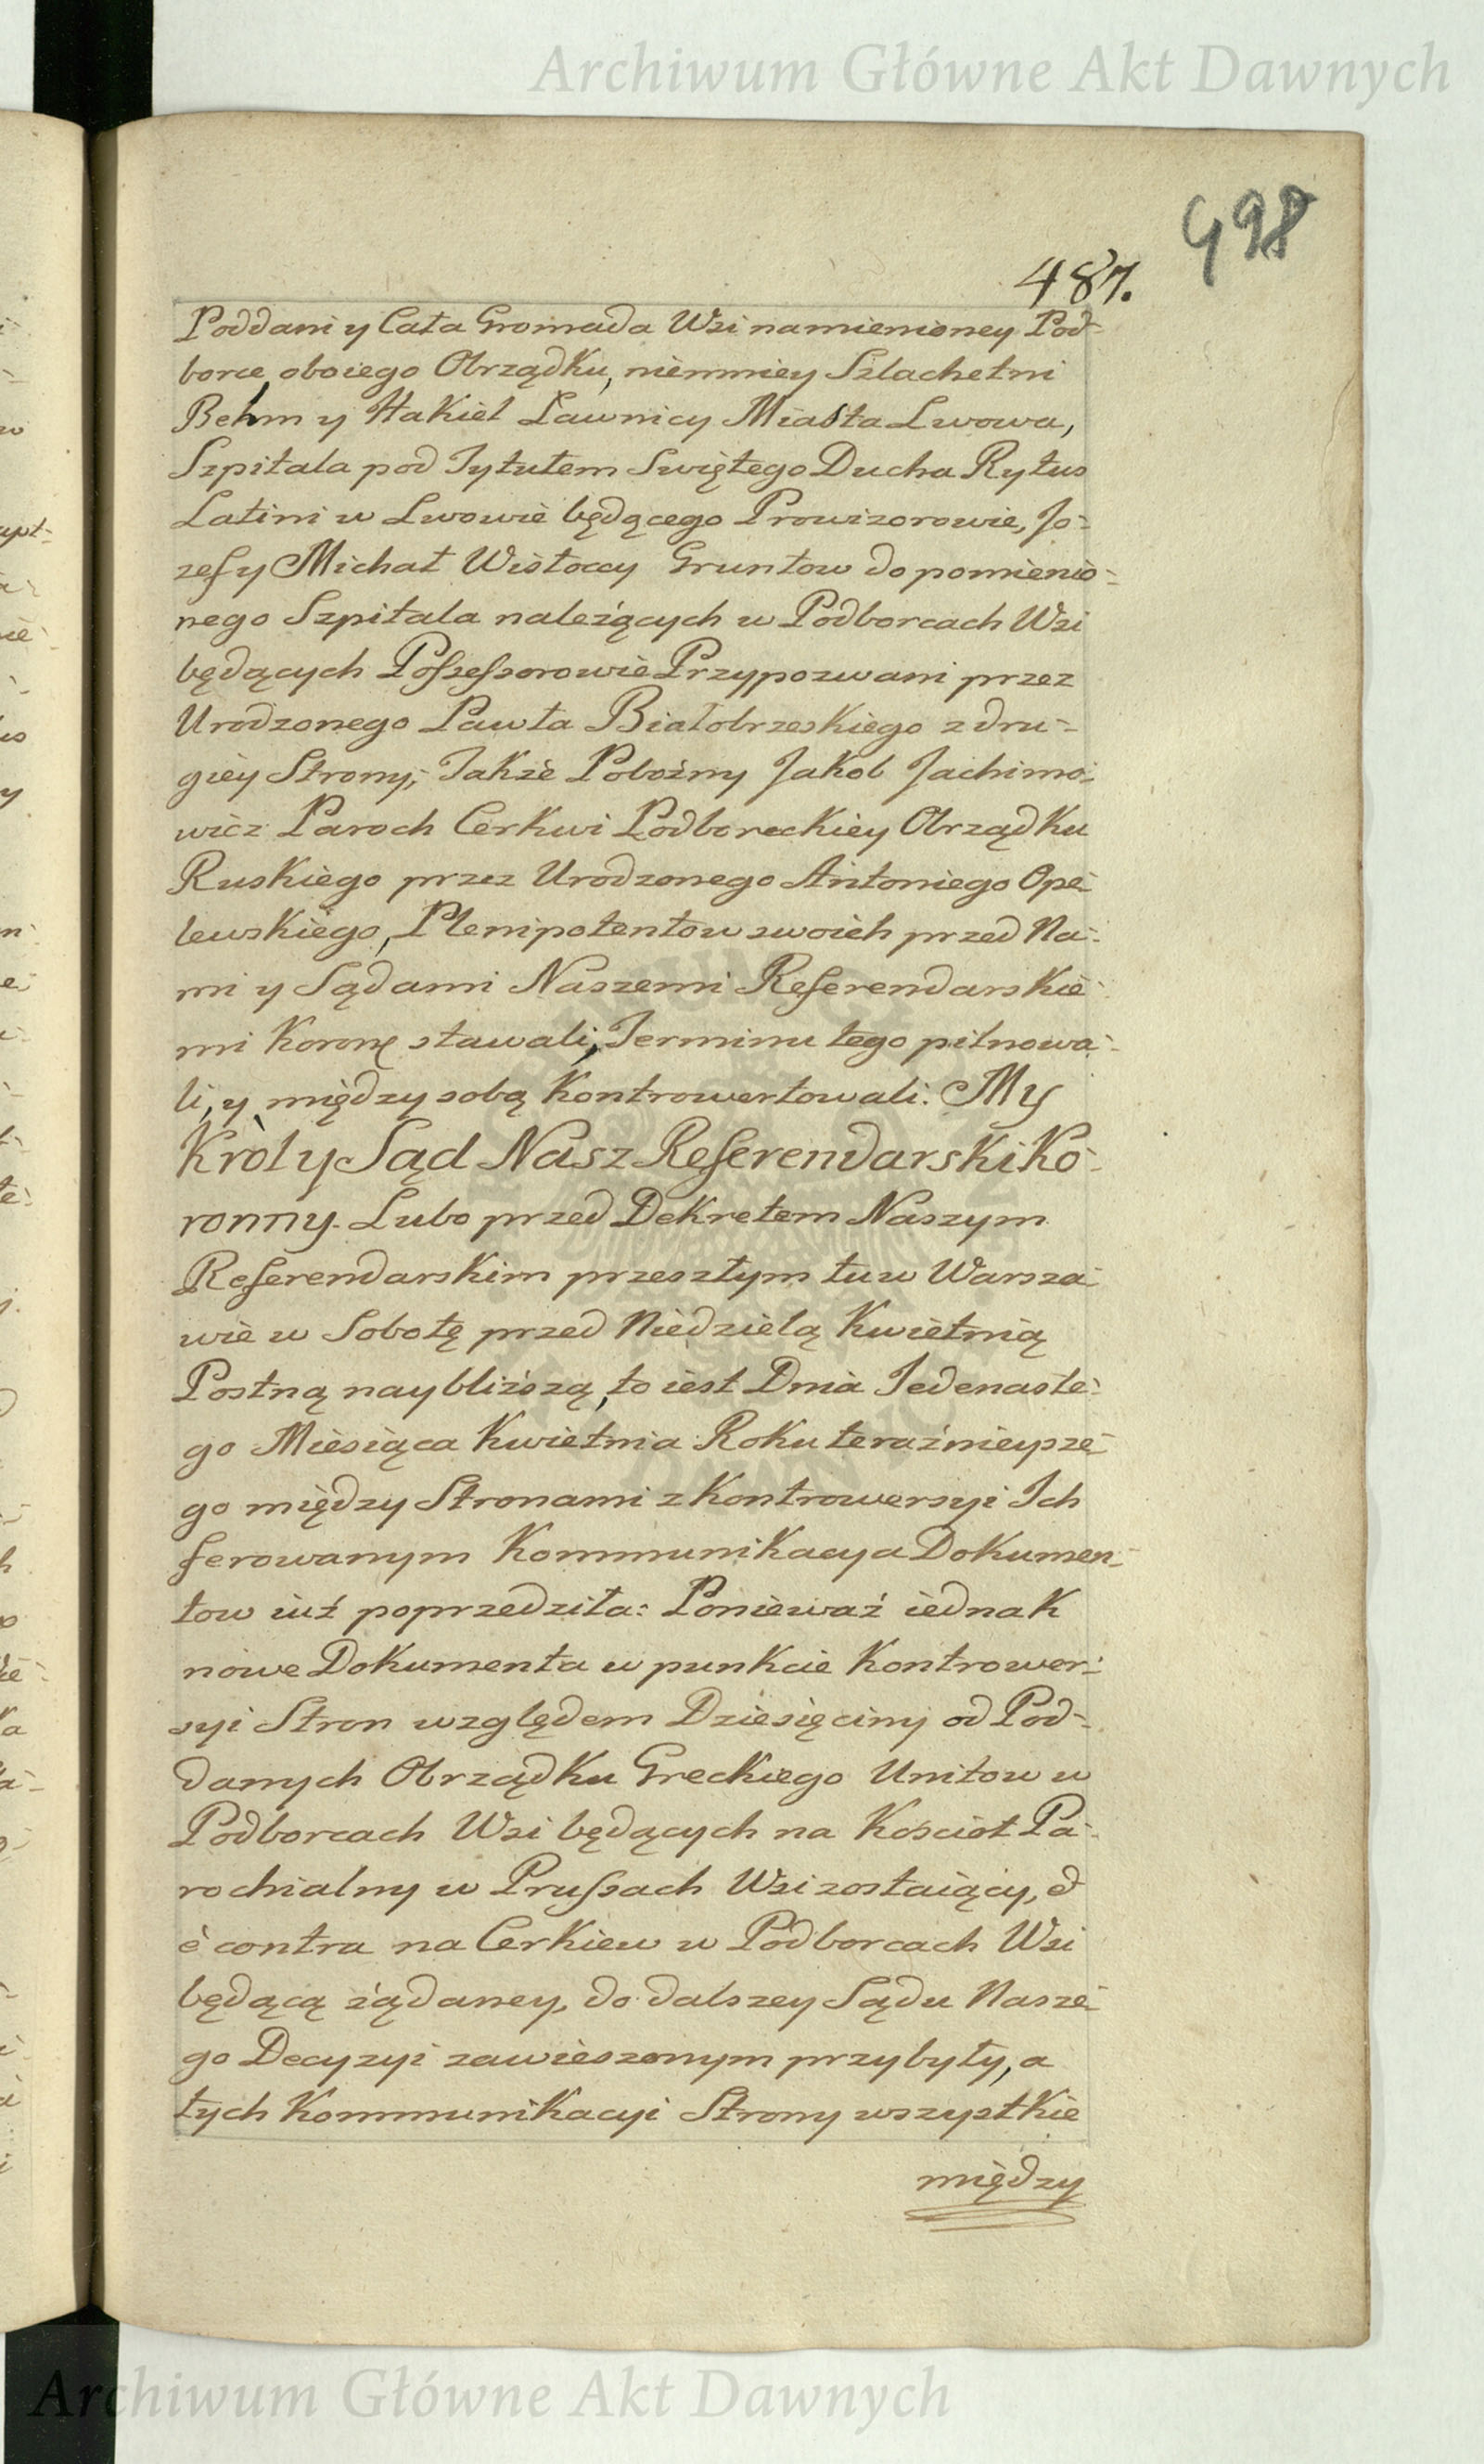 Archiwum Główne Akt Dawnych
498
487.
Poddani y Cała Gromada Wsi namienioney Pod-
borce oboiego Obrządku, niemniey Szlachetni
Behm y Hakiel Ławnicy Miasta Lwowa,
Szpitala pod Tytułem Swiętego Ducha Rytus
Latini w Lwowie będącego Prowizorowie, Jo-
zef y Michał Wisłoccy Gruntow do pomienio-
nego Szpitala należących w Podborcach Wsi
będących Possessorowie Przypozwani przez
Urodzonego Pawła Białobrzeskiego z dru-
giey Strony; Także Pobożny Jakob Jachimo-
wicz Paroch Cerkwi Podboreckiey Obrządku
Ruskiego przez Urodzonego Antoniego Ope-
lewskiego, Plenipotentow swoich przed Na-
mi y Sądami Naszemi Referendarskie-
mi Koronę stawali, Terminu tego pilnowa-
li, y między sobą Kontrowertowali. My
Król y Sąd Nasz Referendarski Ko-
ronny. Lubo przed Dekretem Naszym
Referendarskim przeszłym tu w Warsza-
wie w Sobotę przed Niedzielą Kwietnią
Postną naybliższą, to iest Dnia Jedenaste-
go Miesiąca Kwietnia Roku teraźnieysze-
go między Stronami z Kontrowersyi Ich
ferowanym Kommunikacya Dokumen-
tow iuż poprzedziła: Ponieważ iednak
nowe Dokumenta w punkcie Kontrower-
syi Stron względem Dziesięciny od Pod-
danych Obrządku Greckiego Unitow w
Podborcach Wsi będących na Kościoł Pa-
rochialny w Prussach Wsi zostaiący, &
è contra na Cerkiew w Podborcach Wsi
będącą żądaney, do dalszey Sądu Nasze-
go Decyzyi zawieszonym przybyły, a
tych Kommunikacyi Strony wszystkie
między
Archiwum Główne Akt Dawnych